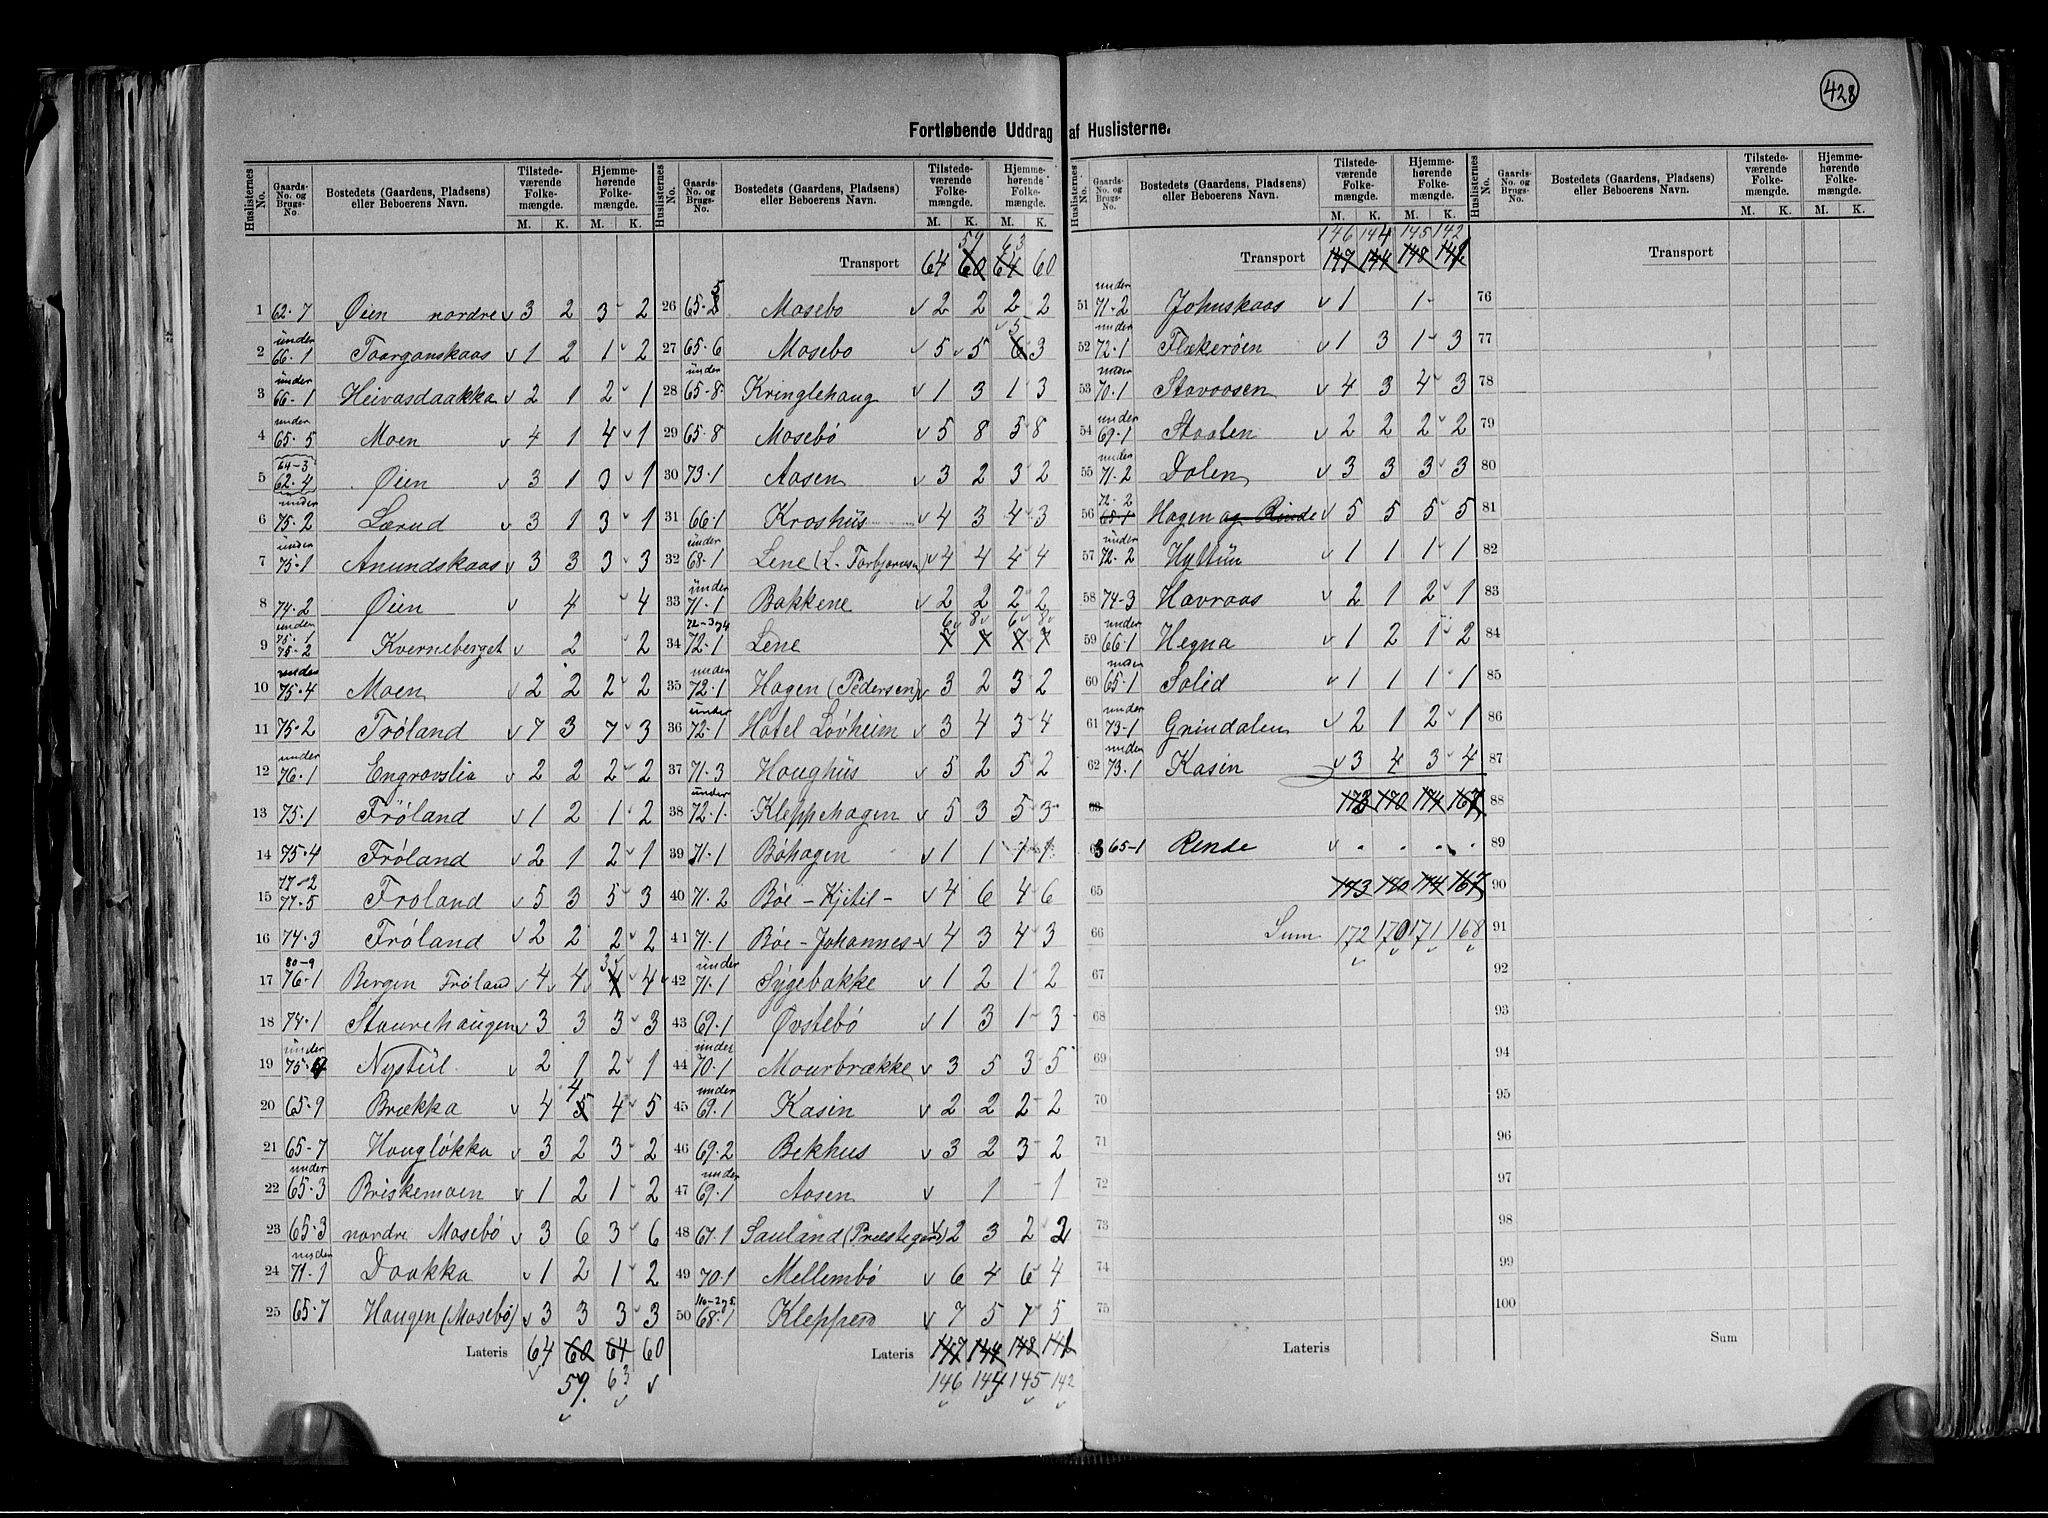 428
Fortløbende Uddrag af Huslisterne.
Huslisternes No. Gaards-No. og Brugs-No. Bostedets (Gaardens, Pladsens) eller Beboerens Navn. Tilstedeværende Folkemængde. Hjemmehørende Folkemængde. M. K. M. K.
1 62-7 Øien nordre v 3 2 3 2
2 under 66-1 Taarganskaas v 1 2 1 2
3 under 66-1 Heivasdaakka v 2 1 2 1
4 under 65-5 Moen v 4 1 4 1
5 64-3 62-4 Øien v 3 1 3 1
6 under 75-2 Lærud v 3 1 3 1
7 under 75-1 Anundskaas v 3 3 3 3
8 74-2 Øien v 4 4
9 under 75-1 75-2 Kverneberget v 2 2
10 under 75-4 Moen v 2 2 2 2
11 75-2 Frøland v 7 3 7 3
12 under 76-1 Engravslia v 2 2 2 2
13 75-1 Frøland v 1 2 1 2
14 75-4 Frøland v 2 1 2 1
15 77-2 77-5 Frøland v 5 3 5 3
16 74-3 Frøland v 2 2 2 2
17 80-9 76-1 Bergen Frøland v 4 4 3 4 4
18 74-1 Staurehaugen v 3 3 3 3
19 under 75- Nystül v 2 1 2 1
20 65-9 Brækka v 4 4 5 4 5
21 65-7 Haugløkka v 3 2 3 2
22 under 65-3 Briskemoen v 1 2 1 2
23 65-3 nordre Mosebö v 3 6 3 6
24 under 71-1 Daakka v 1 2 1 2
25 65-7 Haugen (Mosebö) v 3 3 3 3
Lateris 64 60 64 60
59. 63
Huslisternes No. Gaards-No. og Brugs-No. Bostedets (Gaardens, Pladsens) eller Beboerens Navn. Tilstedeværende Folkemængde. Hjemmehørende Folkemængde. M. K. M. K.
59 63
Transport 64 60 64 60
26 65-5 Mosebo v 2 2 2 2
27 65-6 Mosebo v 5 5 5 6 3
28 under 65-8 Kringlehaug v 1 3 1 3
29 65-8 Mosebö v 5 8 5 8
30 73-1 Aasen v 3 2 3 2
31 66-1 Kroshüs v 4 3 4 3
32 under 68-1 Lene (L. Torbjørnsen) v 4 4 4 4
33 under 71-1 Bakkene v 2 2 2 2
6 8 6 8
34 72-3 og 4 72-1 Lene 7 7 7 7
35 under 72-1 Hagen (Pedersen) v 3 2 3 2
36 under 72-1 Hotel Lövheim v 3 4 3 4
37 71-3 Haughüs v 5 2 5 2
38 under 72-1 Kleppehagen v 5 3 5 3
39 71-1 Böhagen v 1 1 1 1
40 71-2 Bøe - Kjetil - v 4 6 4 6
41 71-1 Bøe - Johannes - v 4 3 4 3
42 under 71-1 Sygebakke v 1 2 1 2
43 69-1 Øvstebö v 1 3 1 3
44 under 70-1 Maurbrække v 3 5 3 5
45 under 69-1 Kasin v 2 2 2 2
46 69-2 Bekhus v 3 2 3 2
47 under 69-1 Aasen v 1 1
48 67-1 Sauland (Præstegard) v 2 3 2 2
49 70-1 Mellembö v 6 4 6 4
50 68-1 Kleppen v 7 5 7 5
Lateris 147 144 148 141
146 144 145 142
Huslisternes No. Gaards-No. og Brugs-No. Bostedets (Gaardens, Pladsens) eller Beboerens Navn. Tilstedeværende Folkemængde. Hjemmehørende Folkemængde. M. K. M. K.
146 144 145 142
Transport 147 144 148 141
51 under 71-2 Johnskaas v 1 1
52 under 72-1 Flækerøen v 1 3 1 3
53 under 70-1 Stavaasen v 4 3 4 3
54 under 69-1 Staalen v 2 2 2 2
55 under 71-2 Dalen v 3 3 3 3
56 72-2 65-1 Hagen og Rinde v 5 5 5 5
57 under 72-2 Hyttün v 1 1 1 1
58 74-3 Havraas v 2 1 2 1
59 under 66-1 Hegna v 1 2 1 2
60 under 65-1 Solid v 1 1 1 1
61 under 73-1 Grindalen v 2 1 2 1
62 under 73-1 Kasin v 3 4 3 4
63 173 170 174 167
63 65-1 Rende v . . . .
65 173 170 174 167
66 Sum 172 170 171 168
67
68
69
70
71
72
73
74
75
Lateris
Huslisternes No. Gaards-No. og Brugs-No. Bostedets (Gaardens, Pladsens) eller Beboerens Navn. Tilstedeværende Folkemængde. Hjemmehørende Folkemængde. M. K. M. K.
Transport
76
77
78
79
80
81
82
83
84
85
86
87
88
89
90
91
92
93
94
95
96
97
98
99
100
Sum